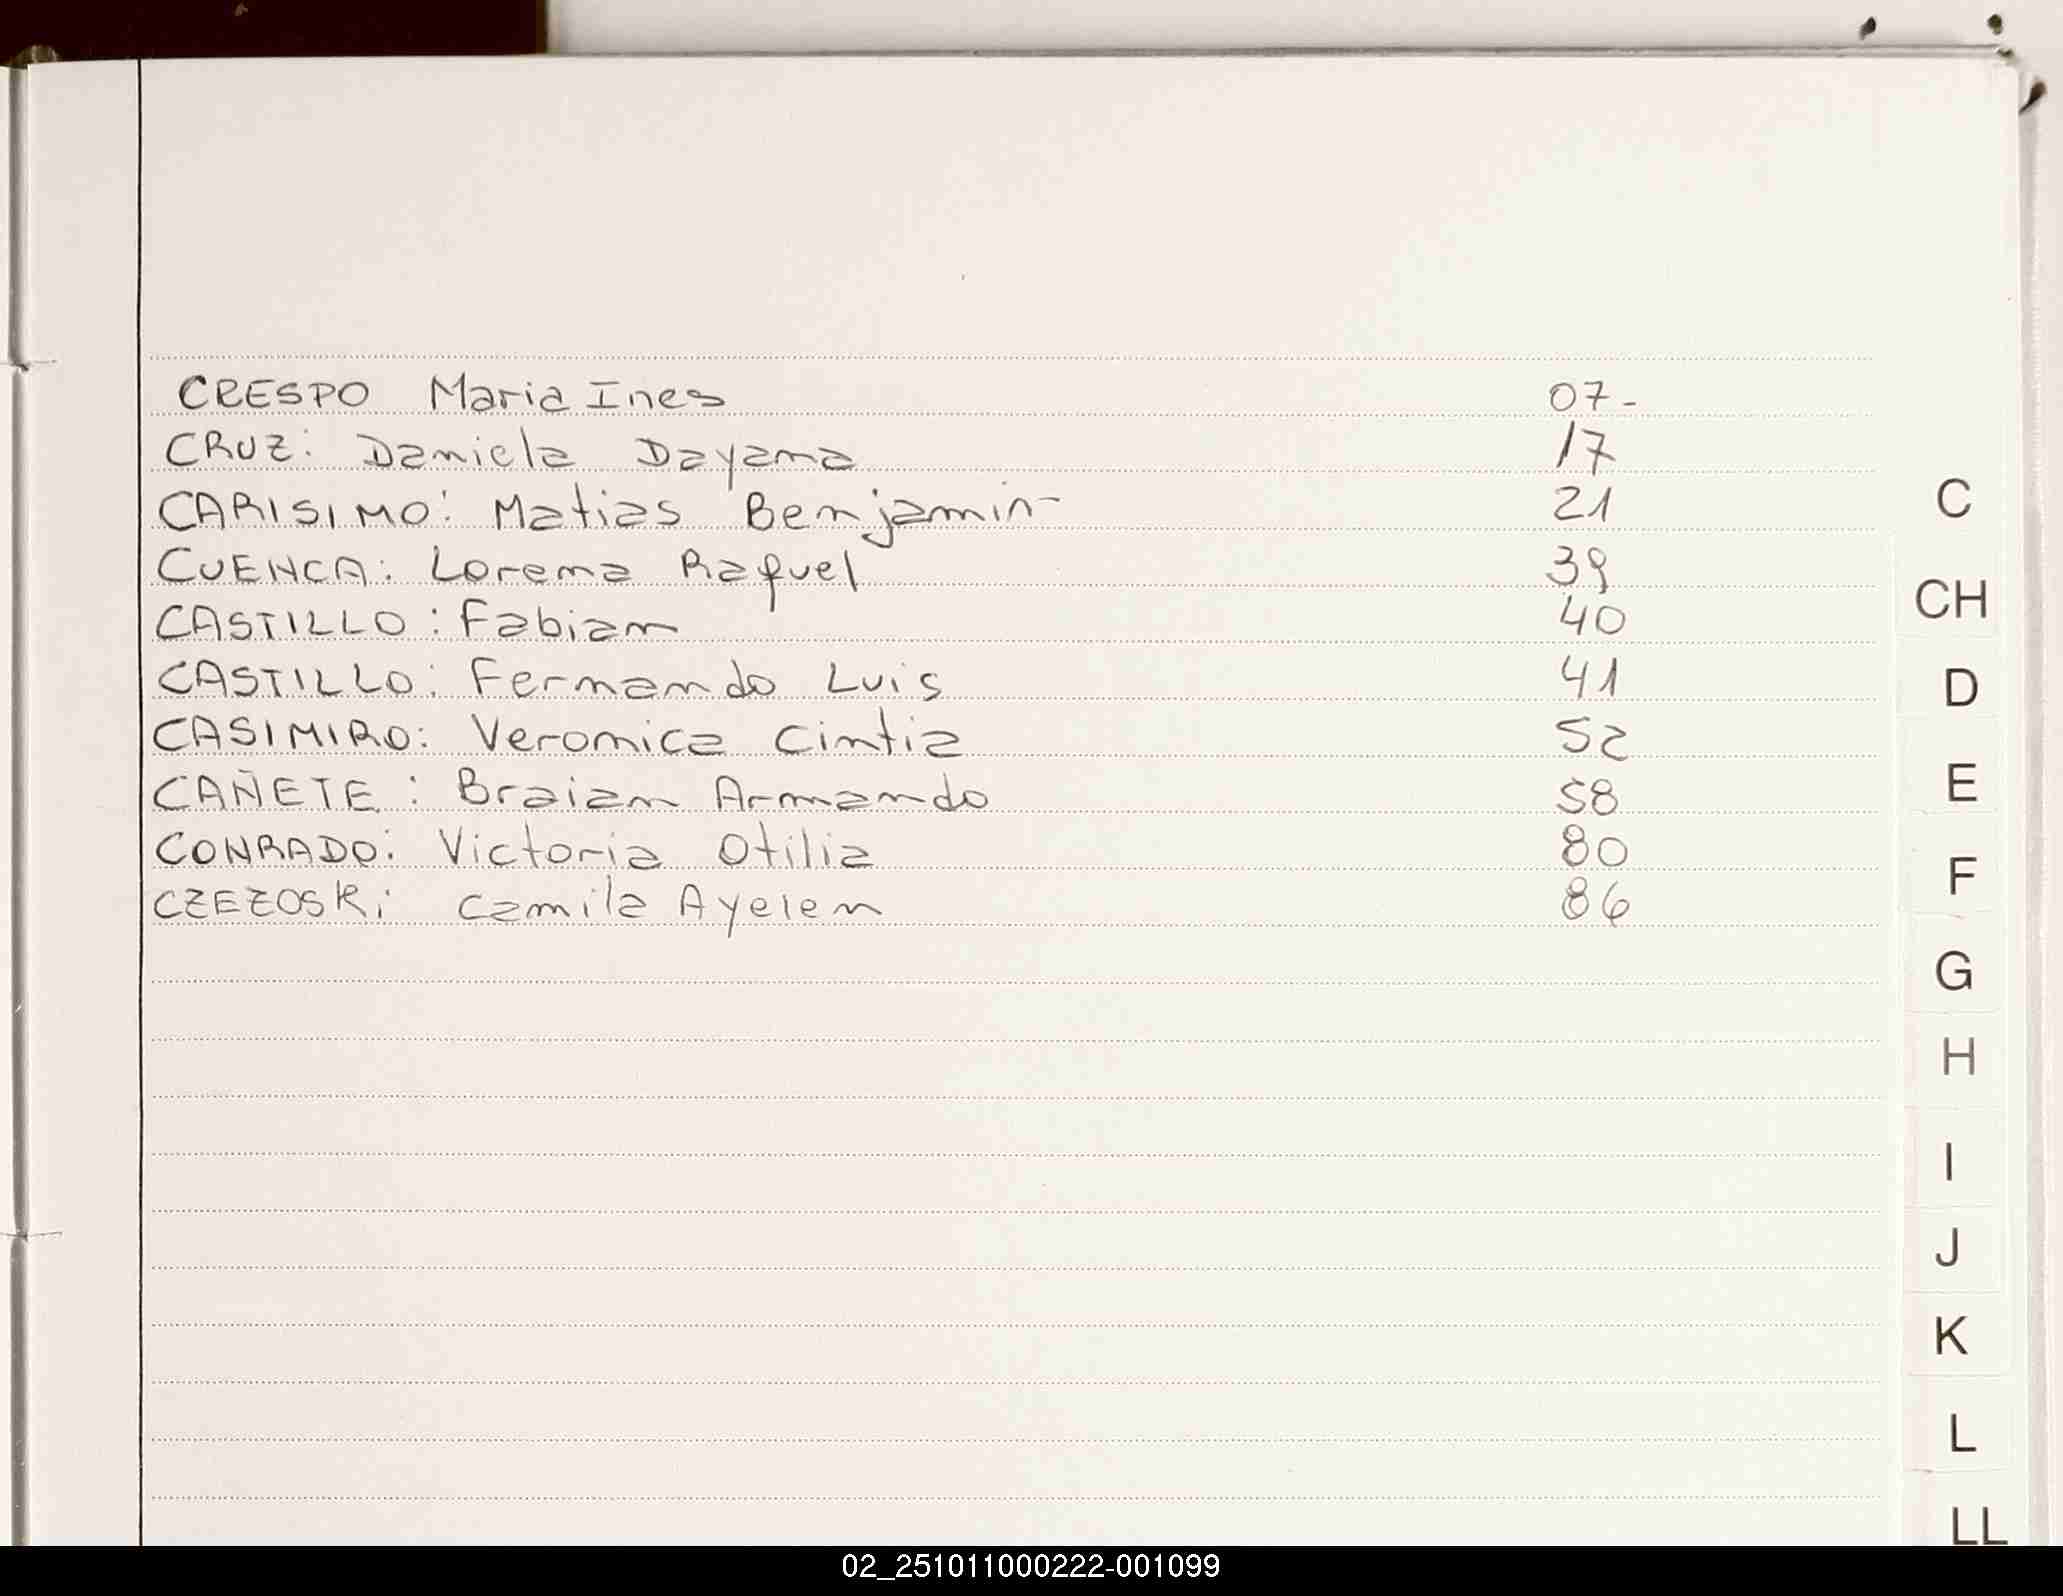 CRESPO Maria Ines 07-
CRUZ: Daniela Dayana 17
CARISIMO: Matias Benjamin- 21
CUENCA: Lorena Raquel 39
CASTILLO: Fabian 40
CASTILLO: Fernando Luis 41
CASIMIRO: Veronica Cintia 52
CAÑETE: Braian Armando 58
CONRADO: Victoria Otilia 80
CZEZOSKi Camila Ayelen 86
C
CH
D
E
F
G
H
I
J
K
L
LL
02_251011000222-001099